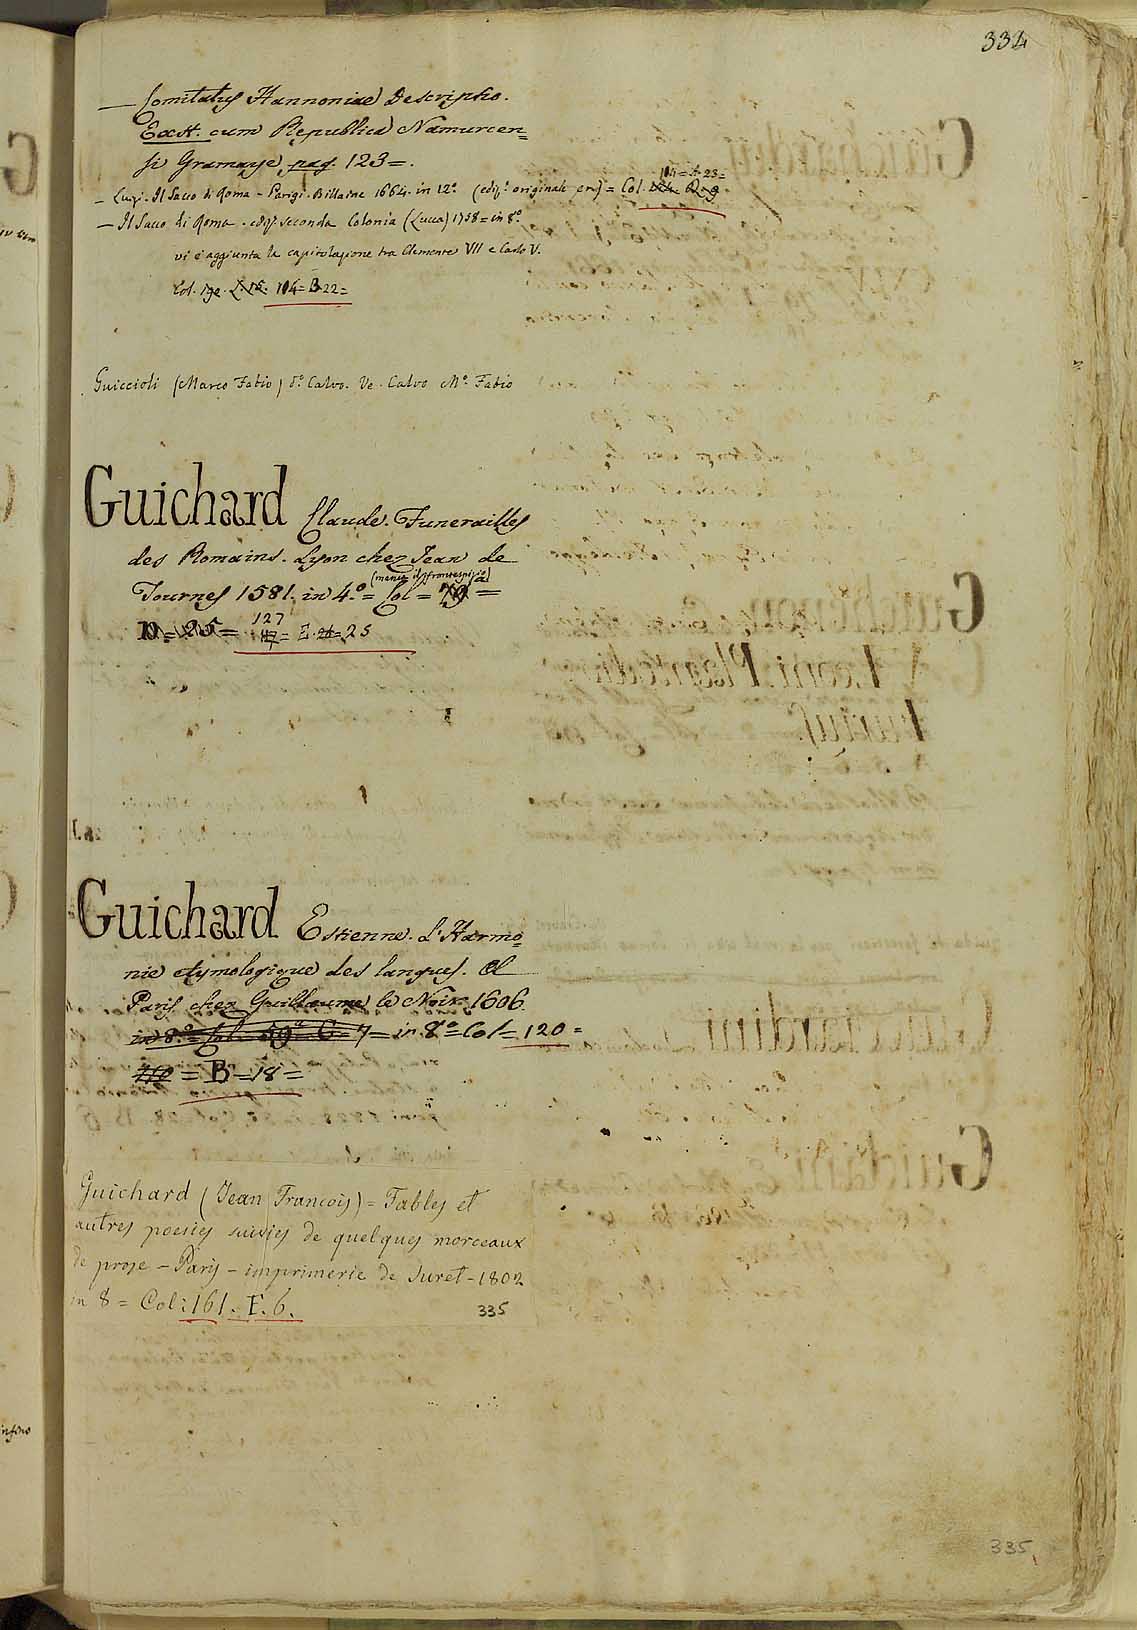 334
— Comitatus Hannoniae Descriptio.
Exst. cum Republica Namurcen=
si Gramaye, pag. 123=.
104 = A. 23=
— Luigi. Il Sacco di Roma - Parigi. Billaine 1664. in 12.° (ediz.e originale) = Col.
— Il Sacco di Roma. ediz.e seconda Colonia (Lucca) 1758 = in 8.°
vi è aggiunta la capitolazione tra Clemente VII e Carlo V.
Col. 104 = B. 22=
Guiccioli (Marco Fabio) d.° Calvo. Ve. Calvo M.° Fabio
Guichard Claude. Funerailles
des Romains. Lyon chez Jean de
(manca il frontespizio)
Tournes 1581. in 4.° = Col = 79 =
127
= E. 25
Guichard Estienne. L'Harmo=
nie etymologique des langues. A
Paris chez Guillaume le Noir 1606.
in 8.° = Col = 59 C = 7 = in 8.° = Col = 120 =
= B = 18 =
Guichard (Jean François) = Fables et
autres poesies suivies de quelques morceaux
de prose - Paris - imprimerie de Suret - 1802
in 8 = Col: 161. F. 6.
335
335